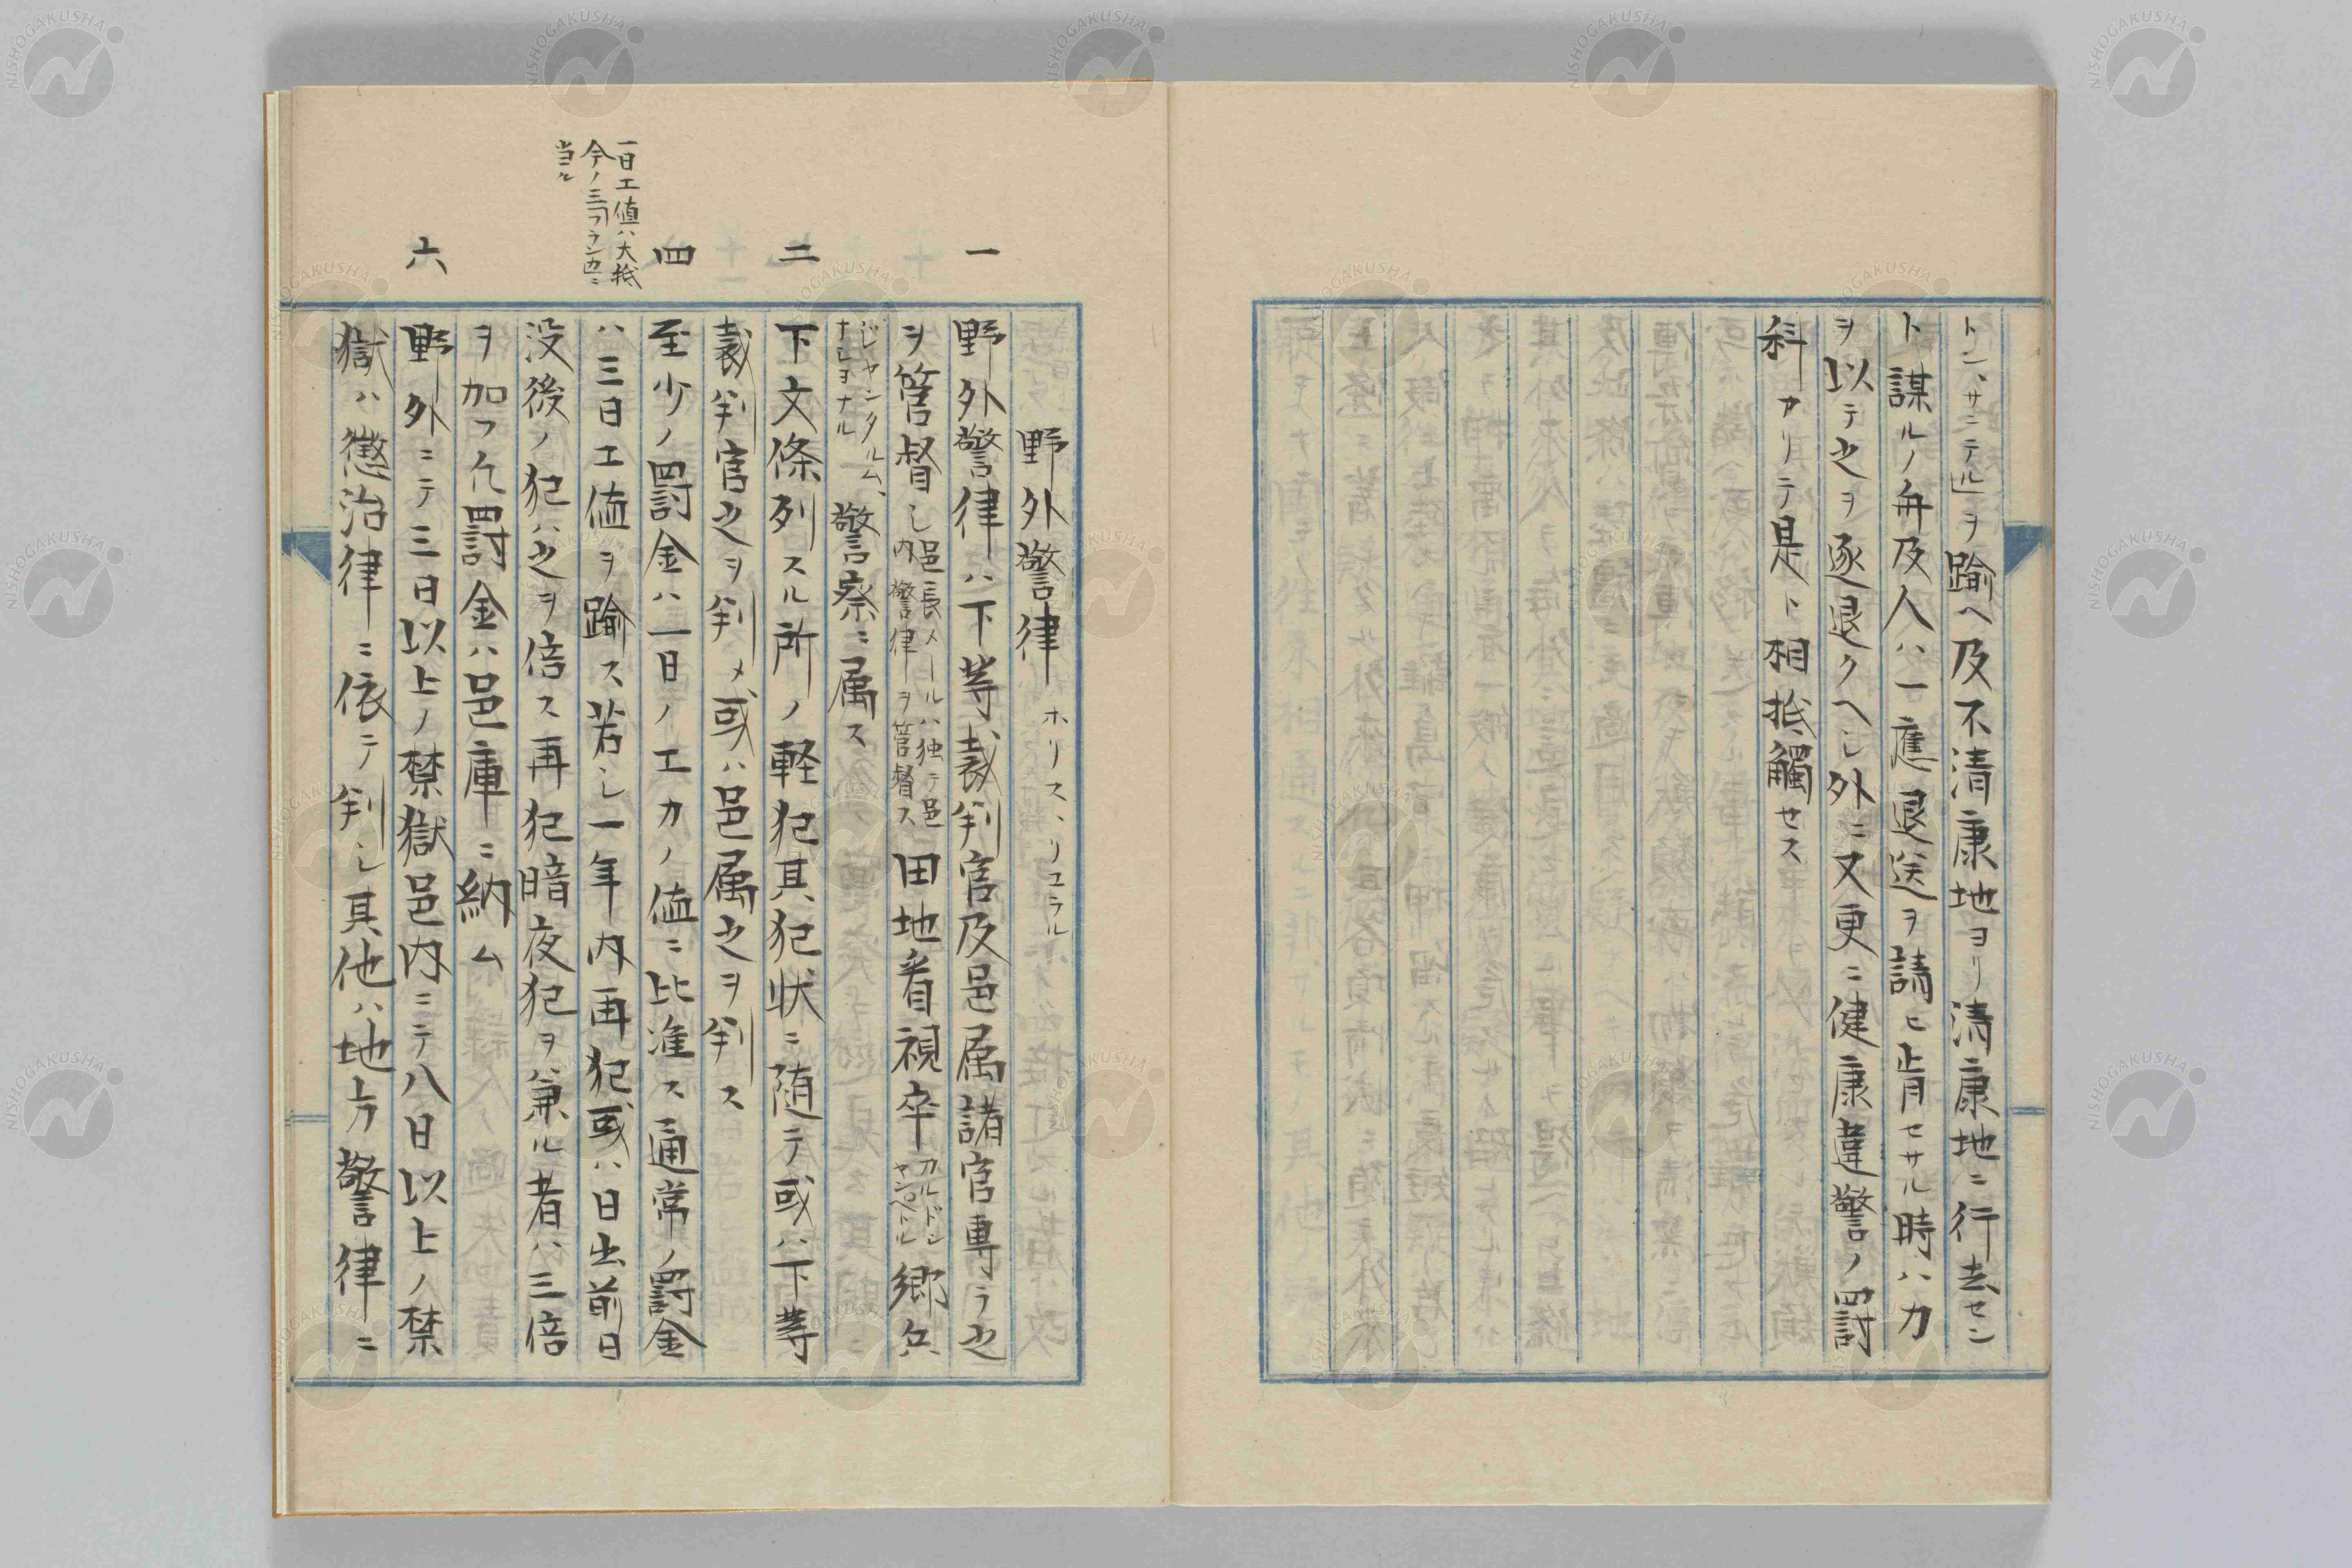 トン、サニテル」ヲ踰ヘ及不清康地ヨリ清康地ニ行去セン
ト謀ルノ舟及人ハ一應退送ヲ請ヒ肯セサル時ハ力
ヲ以テ之ヲ逐退クヘシ外ニ又更ニ健康違警ノ罰
科アリテ是ト相抵觸セス
野外警律 ホリス、リユラル
一
野外警律ハ下等裁判官及邑属諸官専ラ之
ヲ管督シ邑長メールハ独テ邑
内警律ヲ管督ス田地看視卒カルドシ
ヤンペトル郷兵
ジヤンタルム、
ナシヨナル警察ニ属ス
二
下文條列スル所ノ軽犯其犯状ニ随テ或ハ下等
裁判官之ヲ判メ或ハ邑属之ヲ判ス
四
至少ノ罰金ハ一日ノ工力ノ値ニ比準ス通常ノ罰金
一日工値ハ大抵
今ノ三フランニ
当ル
ハ三日工値ヲ踰ス若シ一年内再犯或ハ日出前日
没後ノ犯ハ之ヲ倍ス再犯暗夜犯ヲ兼ル者ハ三倍
ヲ加フ凡罰金ハ邑庫ニ納ム
六
野外ニテ三日以上ノ禁獄邑内ニテ八日以上ノ禁
獄ハ懲治律ニ依テ判シ其他ハ地方警律ニ
NISHOGAKUSHA